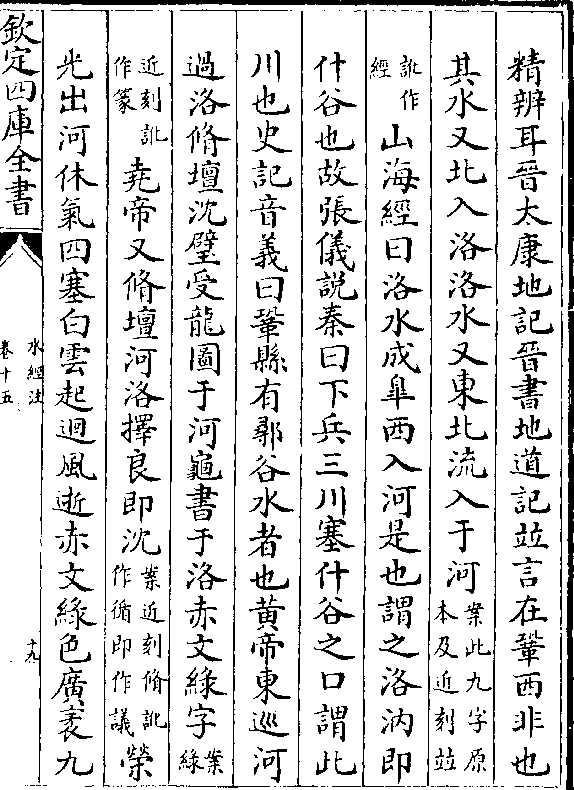 精辨耳晉太康地記晉書地道記竝言在鞏西非也
其水又北入洛洛水又東北流入于河案此九字原本及近刻竝
訛作經山海經曰洛水成臯西入河是也謂之洛汭即
什谷也故張儀説秦曰下兵三川塞什谷之口謂此
川也史記音義曰鞏縣有鄩谷水者也黃帝東巡河
過洛脩壇沈璧受龍圖于河龜書于洛赤文綠字案綠
近刻訛作篆堯帝又脩壇河洛擇良即沈案近刻脩訛作循即作議榮
光出河休氣四塞白雲起迴風逝赤文綠色廣袤九
欽定四庫全書
水經注
卷十五
十九